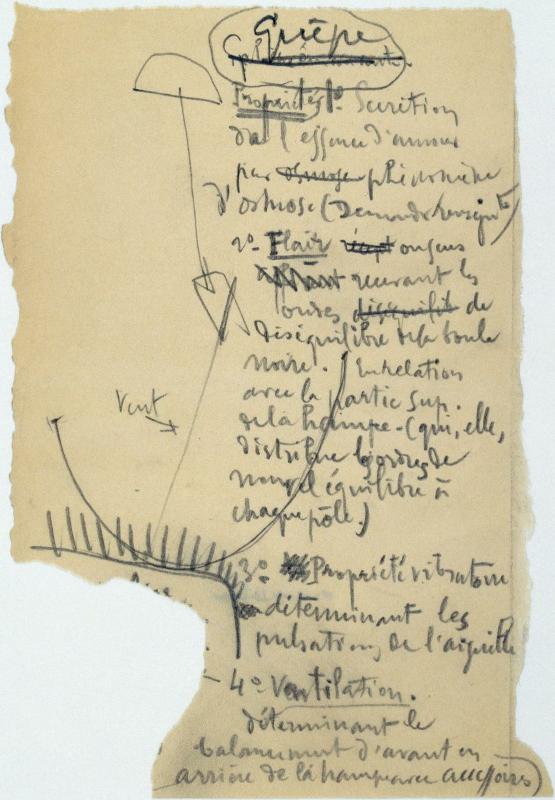 Guêpe
Propriétés 1º- Secrétion
de l'essence d'amour
par osmose phénomène
d'osmose (Demander renseignts)
2º- Flair ou sens
recevant les
ondes de
déséquilibre de la boule
noire. En relation
avec la partie sup.
de la hampe - (qui, elle,
distribue les ordres de
nouvel équilibre à
chaque pôle.)
Vent
3º Propriété vibratoire
déterminant les
pulsations de l'aiguille
- 4º Ventilation.
déterminant le
balancement d'avant en
arrière de la hampe avec accessoires)